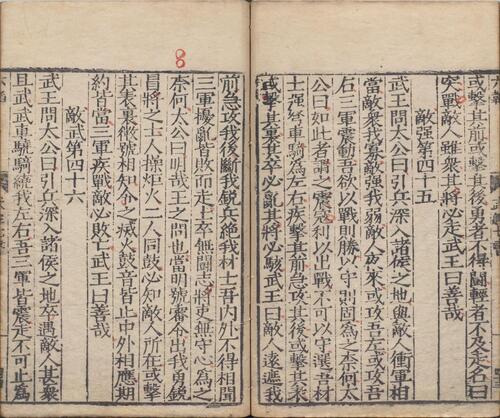 或擊其前或擊其後勇者不得鬭輕者不及走名曰
突戰敵人雖衆其將必走武王曰善哉
敵强第四十五
武王問太公曰引兵深入諸侯之地與敵人衝軍相
當敵衆我寡敵强我弱敵人夜來或攻吾左或攻吾
右三軍震動吾欲以戰則勝以守則固爲之柰何太
公曰如此者謂之震寇利以出戰不可以守選吾材
士强弩車騎爲左右疾擊其前急攻其後或擊其表
或擊其裏其卒必亂其將必駭武王曰敵人遠遮我
前急攻我後斷我銳兵絕我材士吾內外不得相聞
三軍擾亂皆敗而走士卒無鬭志將吏無守心爲之
柰何太公曰明哉王之問也當明號審令出我勇銳
冒將之士人操炬火二人同鼓必知敵人所在或擊
其表裏微號相知令之滅火鼓音皆止中外相應期
約皆當三軍疾戰敵必敗亡武王曰善哉
敵武第四十六
武王問太公曰引兵深入諸侯之地卒遇敵人甚衆
且武武車驍騎繞我左右吾三軍皆震走不可止爲
8